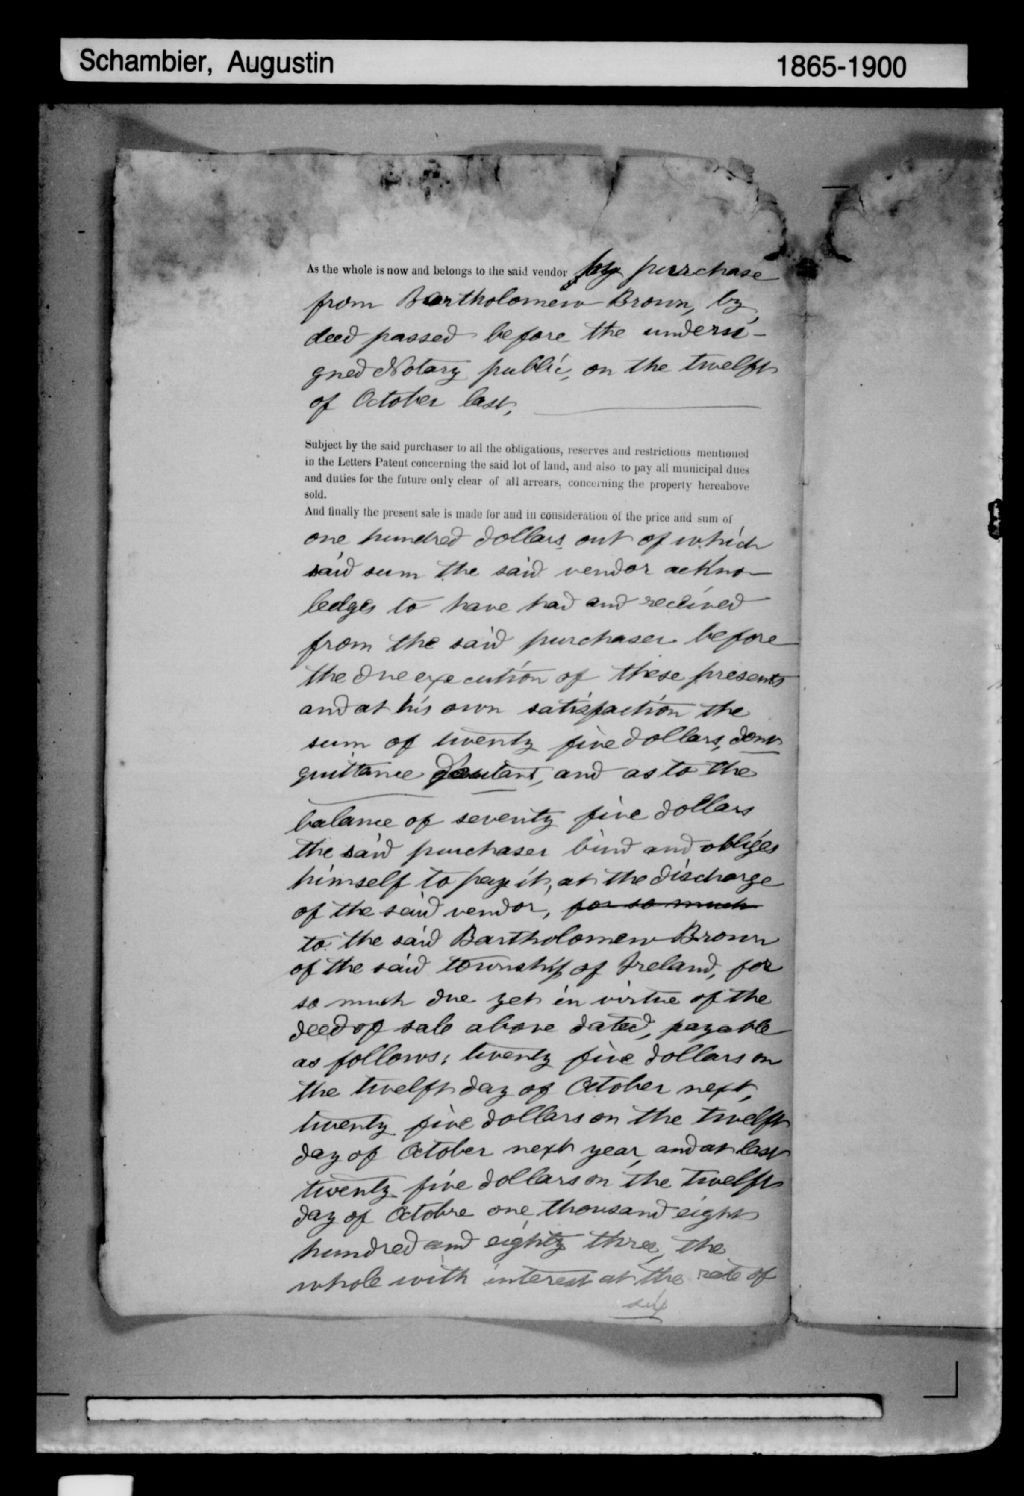 Schambier, Augustin 1865-1900
As the whole is now and belongs to the said vendor by purrchase
from Bartholomew Brown, by
deed passed before the undersi-
gned Notary public, on the twelft
of October last,
Subject by the said purchaser to all the obligations, reserves and restrictions mentioned
in the Letters Patent concerning the said lot of land, and also to pay all municipal dues
and duties for the future only clear of all arrears, concerning the property hereabove
sold.
And finally the present sale is made for and in consideration of the price and sum of
one hundred dollars out of which
said sum the said vendor ackno-
ledges to have had and received
from the said purchaser before
the due execution of these presents
and at his own satisfaction the
sum of twenty five dollars, dont
quittance, and as to the
balance of seventy five dollars
the said purchaser bind and obliges
himself to pay it, at the discharge
of the said vendor, for so much
to the said Bartholomew Brown
of the said township of Ireland, for
so much due yet in virtue of the
deed of sale above dated, payable
as follows; twenty five dollars on
the twelft day of October next,
twenty five dollars on the twelft
day of October next year, and at last
twenty five dollars on the twelft
day of Octobre one thousand eight
hundred and eighty three, the
whole with interest at the rate of
six